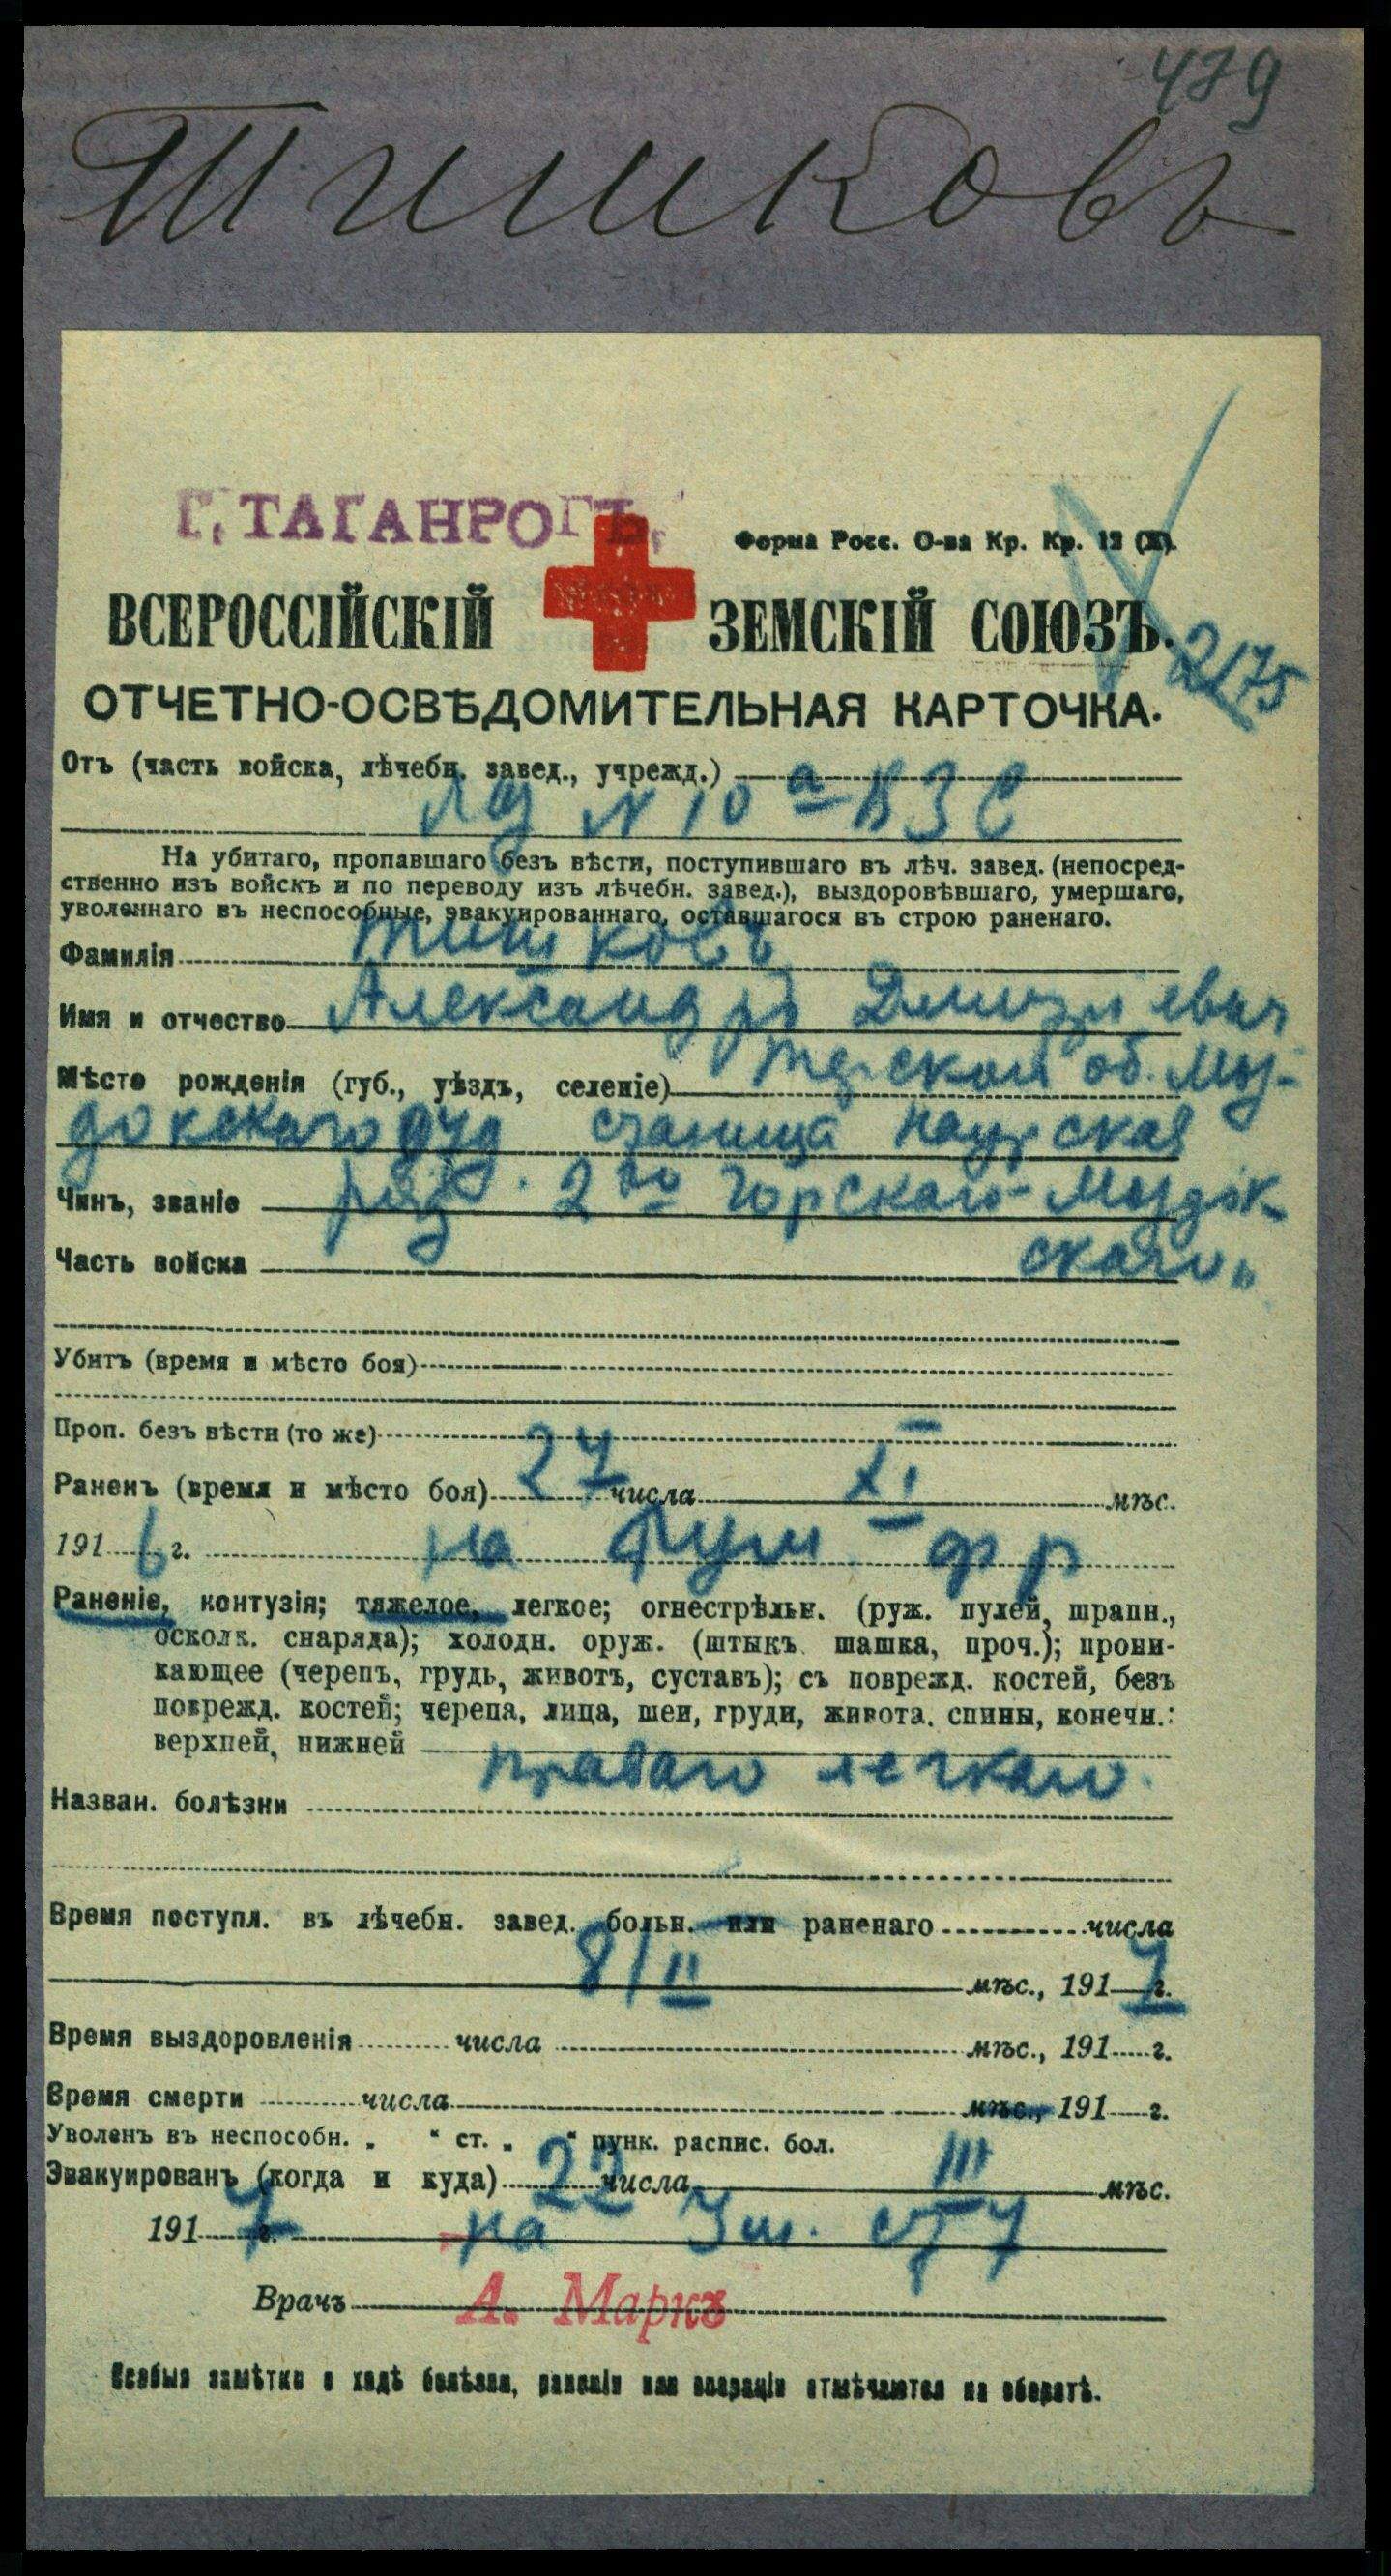 479
Тишковъ
Г. ТАГАНРОГЪ.
Форма Росс. О-ва Кр. Кр. 12 (X).
ВСЕРОССІЙСКІЙ ЗЕМСКІЙ СОЮЗЪ.
2175
ОТЧЕТНО-ОСВѢДОМИТЕЛЬНАЯ КАРТОЧКА.
Отъ (часть войска, лѣчебн. завед., учрежд.)
N 10 а ВЗС
На убитаго, пропавшаго безъ вѣсти, поступившаго въ лѣч. завед. (непосред-
ственно изъ войскъ и по переводу изъ лѣчебн. завед.), выздоровѣвшаго, умершаго,
уволеннаго въ неспособные, эвакуированнаго, оставшагося въ строю раненаго.
Фамилія Тишковъ
Имя и отчество Александръ Дмитріевич
Мѣсто рожденія (губ., уѣздъ, селеніе) Терской об. Моз-
докскаго отд станица Наурская
Чинъ, званіе ряд. 2го Горскаго-Моздок-
Часть войска скаго"
Убитъ (время и мѣсто боя)
Проп. безъ вѣсти (то же)
Раненъ (время и мѣсто боя) 27 числа XI мѣс.
1916 г. на Рум фр
Раненіе, контузія; тяжелое, легкое; огнестрѣльн. (руж. пулей, шрапн.,
осколк. снаряда); холодн. оруж. (штыкъ шашка, проч.); прони-
кающее (черепъ, грудь, животъ, суставъ); съ поврежд. костей, безъ
поврежд. костей; черепа, лица, шеи, груди, живота. спины, конечн.:
верхней, нижней праваго легкаго
Назван. болѣзни
Время поступл. въ лѣчебн. завед. больн. или раненаго числа
8/II мѣс., 1917 г.
Время выздоровленія числа мѣс., 191 г.
Время смерти числа мѣс., 191 г.
Уволенъ въ неспособн. „ “ ст. „ “ пунк. распис. бол.
Эвакуированъ (когда и куда) 22 числа III мѣс.
1917 г. на
Врачъ А. Маркъ
Особыя замѣтки о ходѣ болѣзни, раненіи или операціи отмѣчаются на оборотѣ.